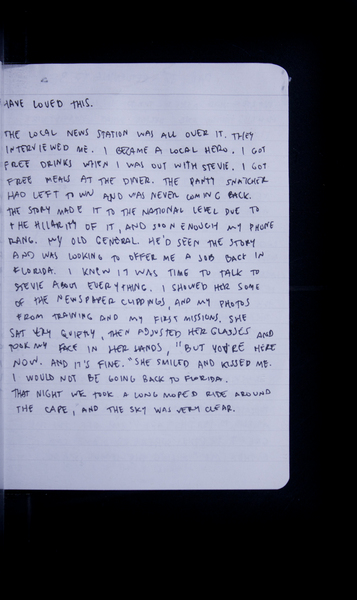 HAVE LOVED THIS.
THE LOCAL NEWS STATION WAS ALL OVER IT. THEY
INTERVIEWED ME. I BECAME A LOCAL HERO. I GOT
FREE DRINKS WHEN I WAS OUT WITH STEVIE. I GOT
FREE MEALS AT THE DINER. THE PANTY SNATCHER
HAD LEFT TOWN AND WAS NEVER COMING BACK.
THE STORY MADE IT TO THE NATIONAL LEVEL DUE TO
THE HILLARITY OF IT, AND SOON ENOUGH MY PHONE
RANG. MY OLD GENERAL. HE'D SEEN THE STORY
AND WAS LOOKING TO OFFER ME A JOB BACK IN
FLORIDA. I KNEW IT WAS TIME TO TALK TO
STEVIE ABOUT EVERYTHING. I SHOWED HER SOME
OF THE NEWSPAPER CLIPPINGS, AND MY PHOTOS
FROM TRAINING AND MY FIRST MISSIONS. SHE
SAT VERY QUIETLY, THEN ADJUSTED HER GLASSES AND
TOOK MY FACE IN HER HANDS, "BUT YOU'RE HERE
NOW. AND IT'S FINE." SHE SMILED AND KISSED ME.
I WOULD NOT BE GOING BACK TO FLORIDA.
THAT NIGHT WE TOOK A LONG MOPED RIDE AROUND
THE CAPE, AND THE SKY WAS VERY CLEAR.